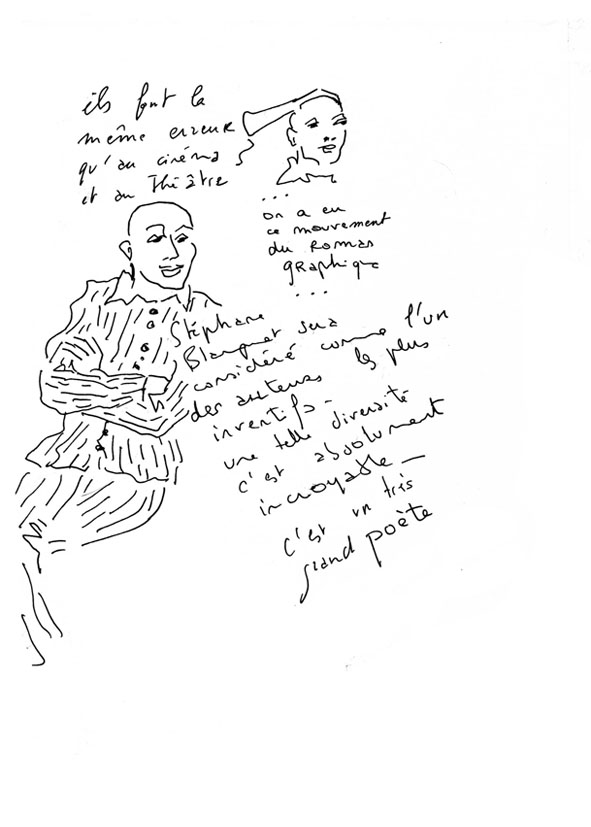 ils font la
même erreur
qu'au cinéma
et au Théâtre
...
on a eu
ce mouvement
du Roman
gRaphique
...
Stéphane
Blanquet sera
considéré comme l'un
des auteurs les plus
inventifs -
une telle diversité
c'est absolument
incroyable -
C'est un très
grand poète